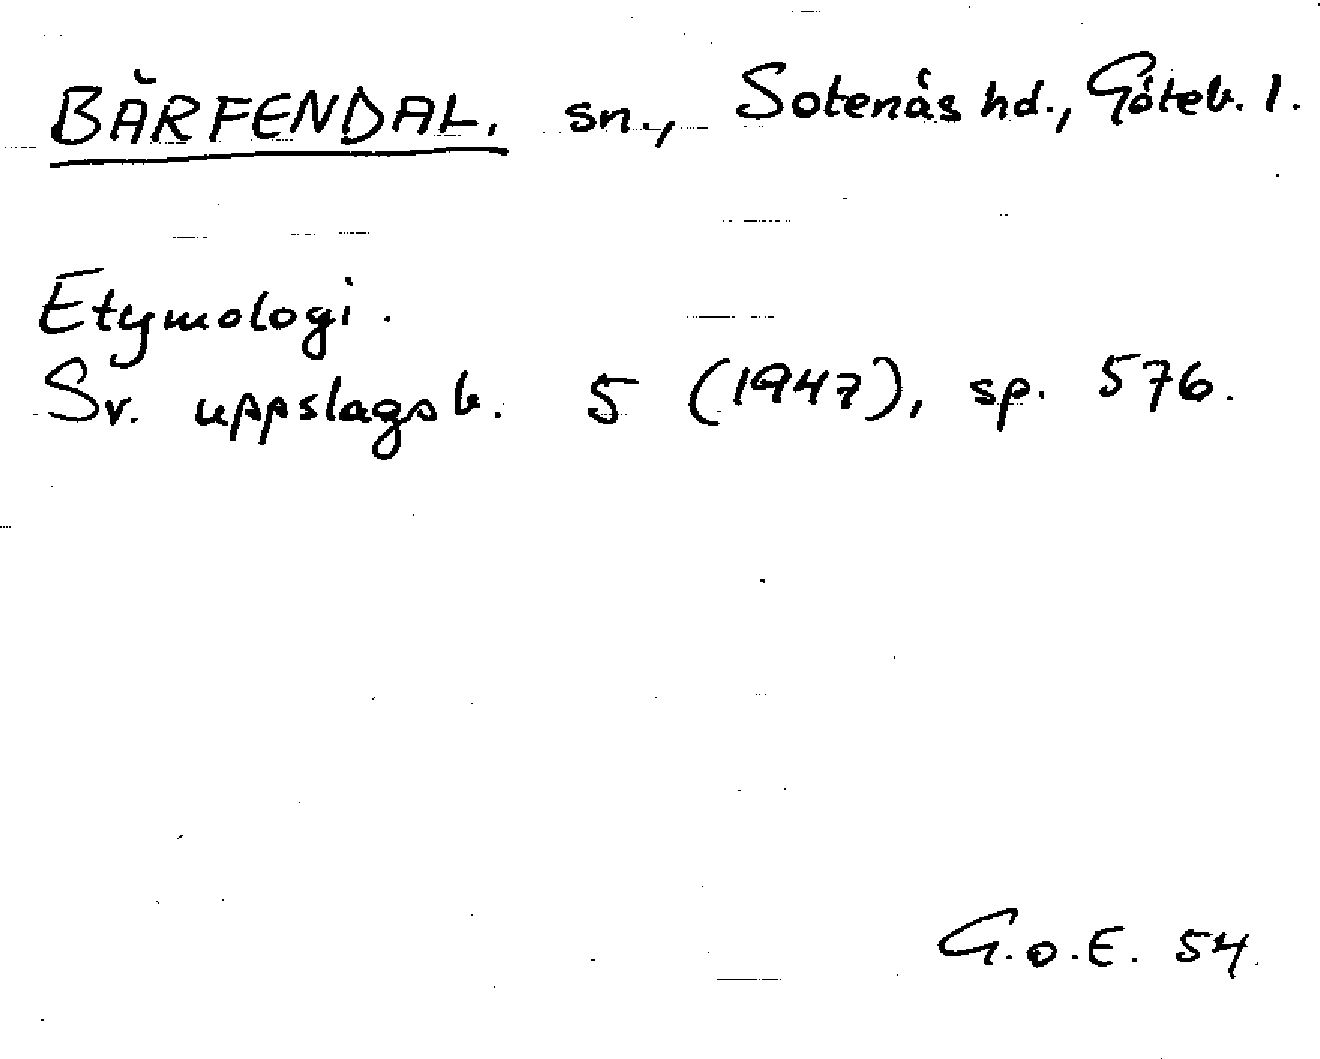 BÄRFENDAL. sn., Sotenäs hd., Göteb. l.
Etymologi.
Sv. uppslagsb. 5 (1947), sp. 576.
G.o.E. 54.